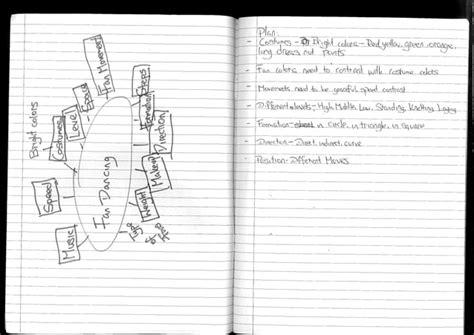 Bright colors
Costumes
Level
Space
Fan Movements
Steps
Formation
Direction
Makeup
Weight
Type of
Speed
Music
Fan Dancing
Plan:
- Costumes - Bright colors - Red, yellow, green, orange,
long dresses not pants
- Fan colors need to contrast with costume colors
- Movements need to be graceful, speed contrast
- Different levels - High, Middle, Low, Standing, Kneeling, Laying
- Formation - in circle, in triangle, in square
- Direction - Direct, indirect, curve
- Position - Different Moves